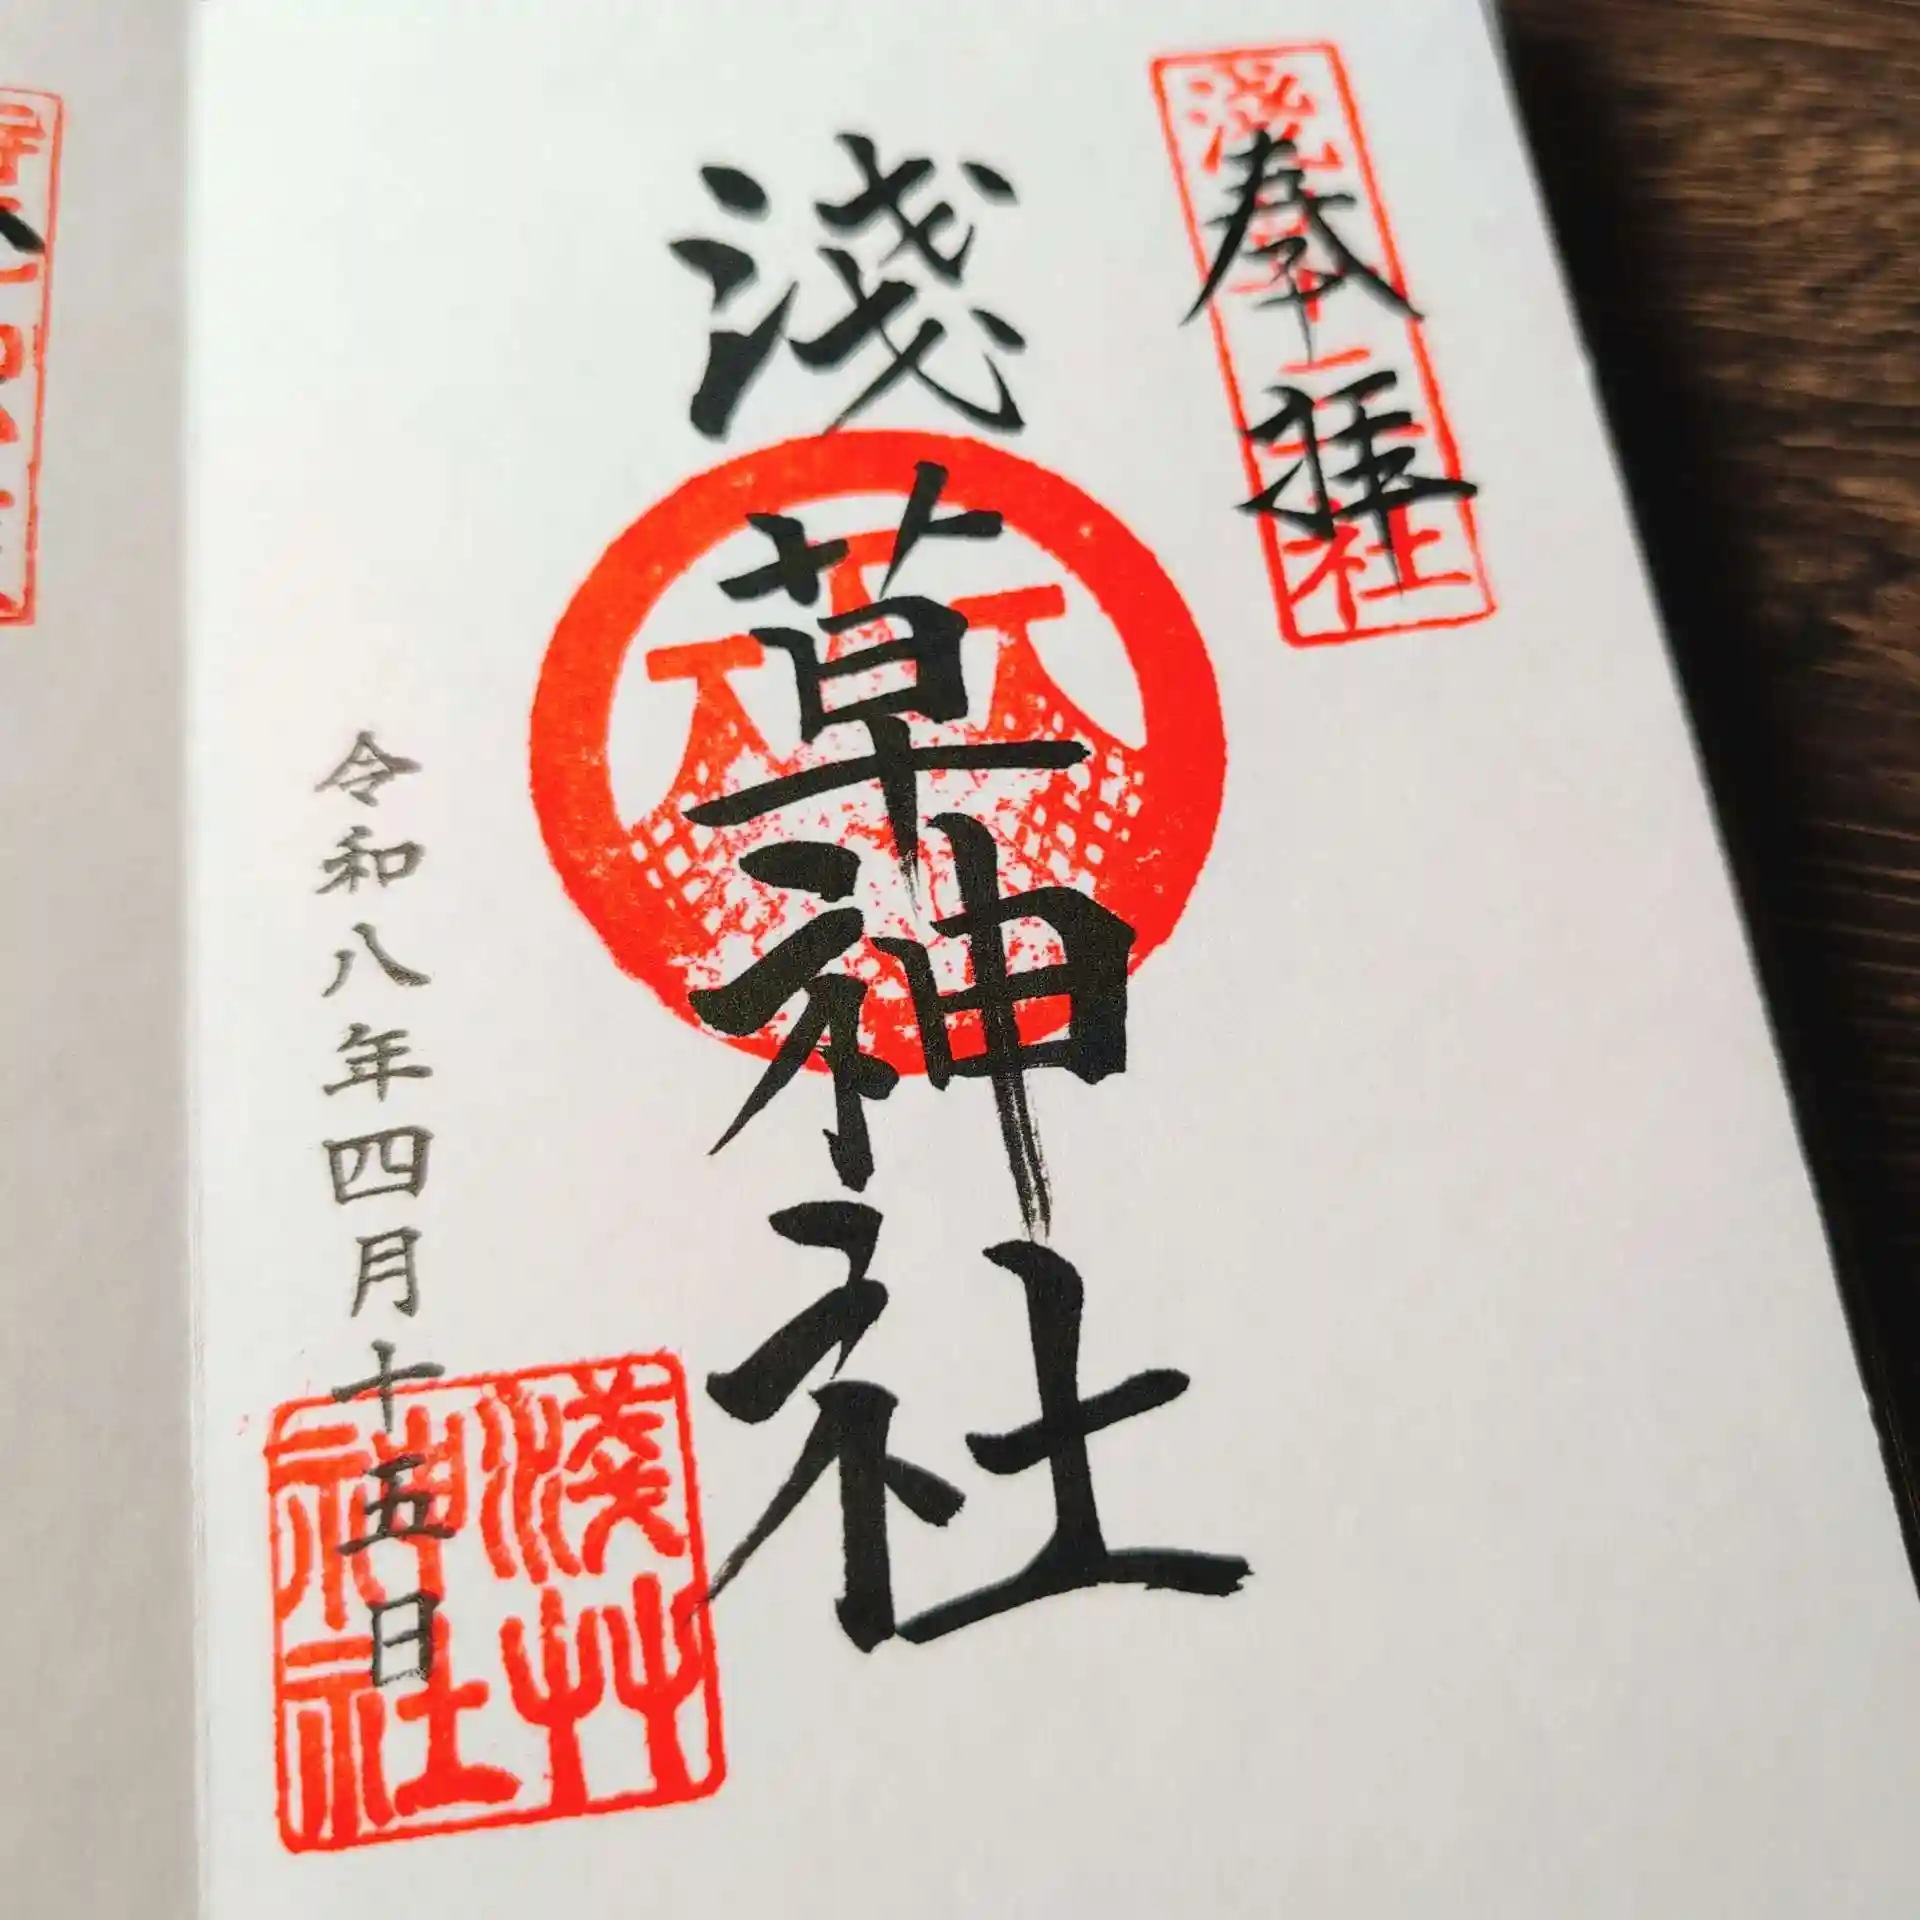 奉拝
浅草神社
淺草神社
令和八年四月十五日
淺草
神社